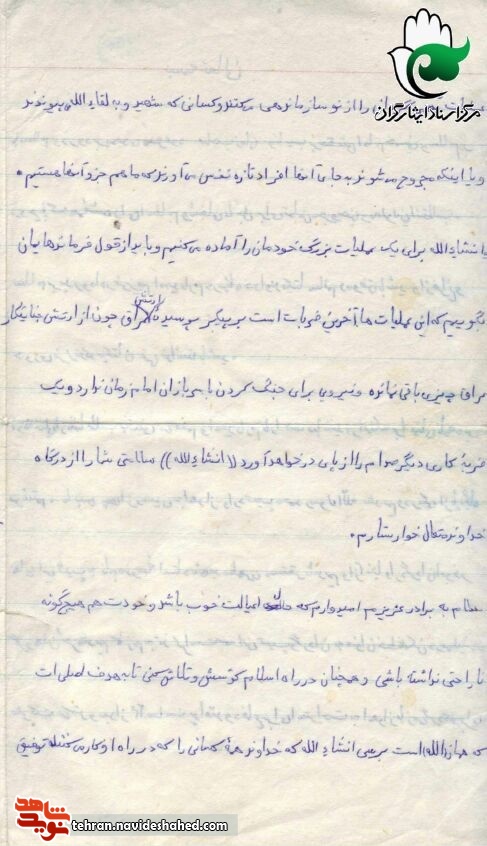 مرکز اسناد ایثارگران
را از نو سازماندهی میکنند و کسانی که شهید و به لقاء الله می پیوندند
و یا اینکه مجروح می شوند به جای آنها افراد تازه نفس می آورند که ما هم جزو آنها هستیم.
انشاء الله برای یک عملیات بزرگ خودمان را آماده می کنیم و باید از قول فرماندهانمان
بگوییم که این عملیات ها آخرین ضربات است بر پیکر پوسیده ارتش عراق چون از ارتش جنایتکار
عراق چیزی باقی نمانده و نیرویی برای جنگ کردن با سربازان امام زمان ندارد و یک
ضربهٔ کاری دیگر صدام را از پای در خواهد آورد ((انشاء الله)) سلامتی شما را از درگاه
خداوند متعال خواستارم.
سلام به برادر عزیزم امیدوارم که حال اعیالت خوب باشد و خودت هم هیچ گونه
ناراحتی نداشته باشی و همچنان در راه اسلام کوشش و تلاش کنی تا به هدف اصلی ات
که همانا (الله) است برسی انشاء الله که خداوند همهٔ کسانی را که در راه او کار می کنند توفیق
نوید شاهد
tehran.navideshahed.com